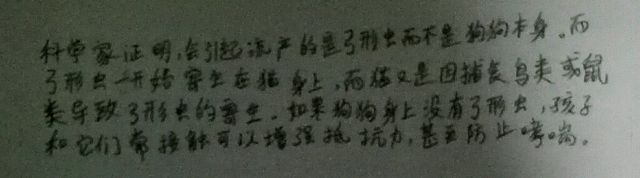 科学家证明,会引起流产的是弓形虫而不是狗狗本身。而
弓形虫一开始寄生在猫身上,而猫又是因捕食鸟类或鼠
类导致弓形虫的寄生。如果狗狗身上没有弓形虫,孩子
和它们常接触可以增强抵抗力,甚至防止哮喘。